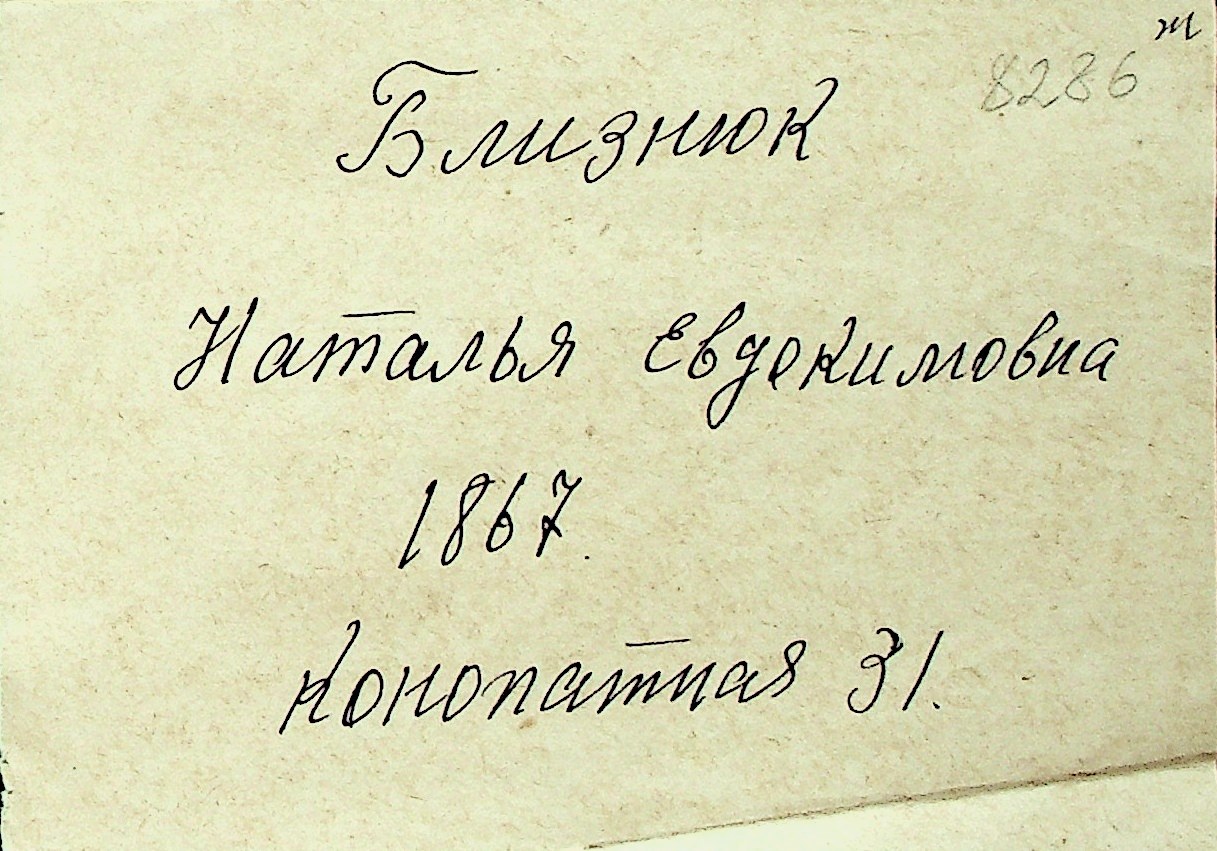 т
8286
Близнюк
Наталья Евдокимовна
1867.
Конопатная 31.